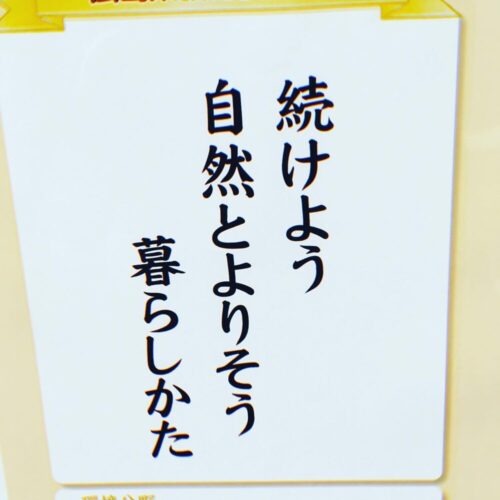 続けよう
自然とよりそう
暮らしかた